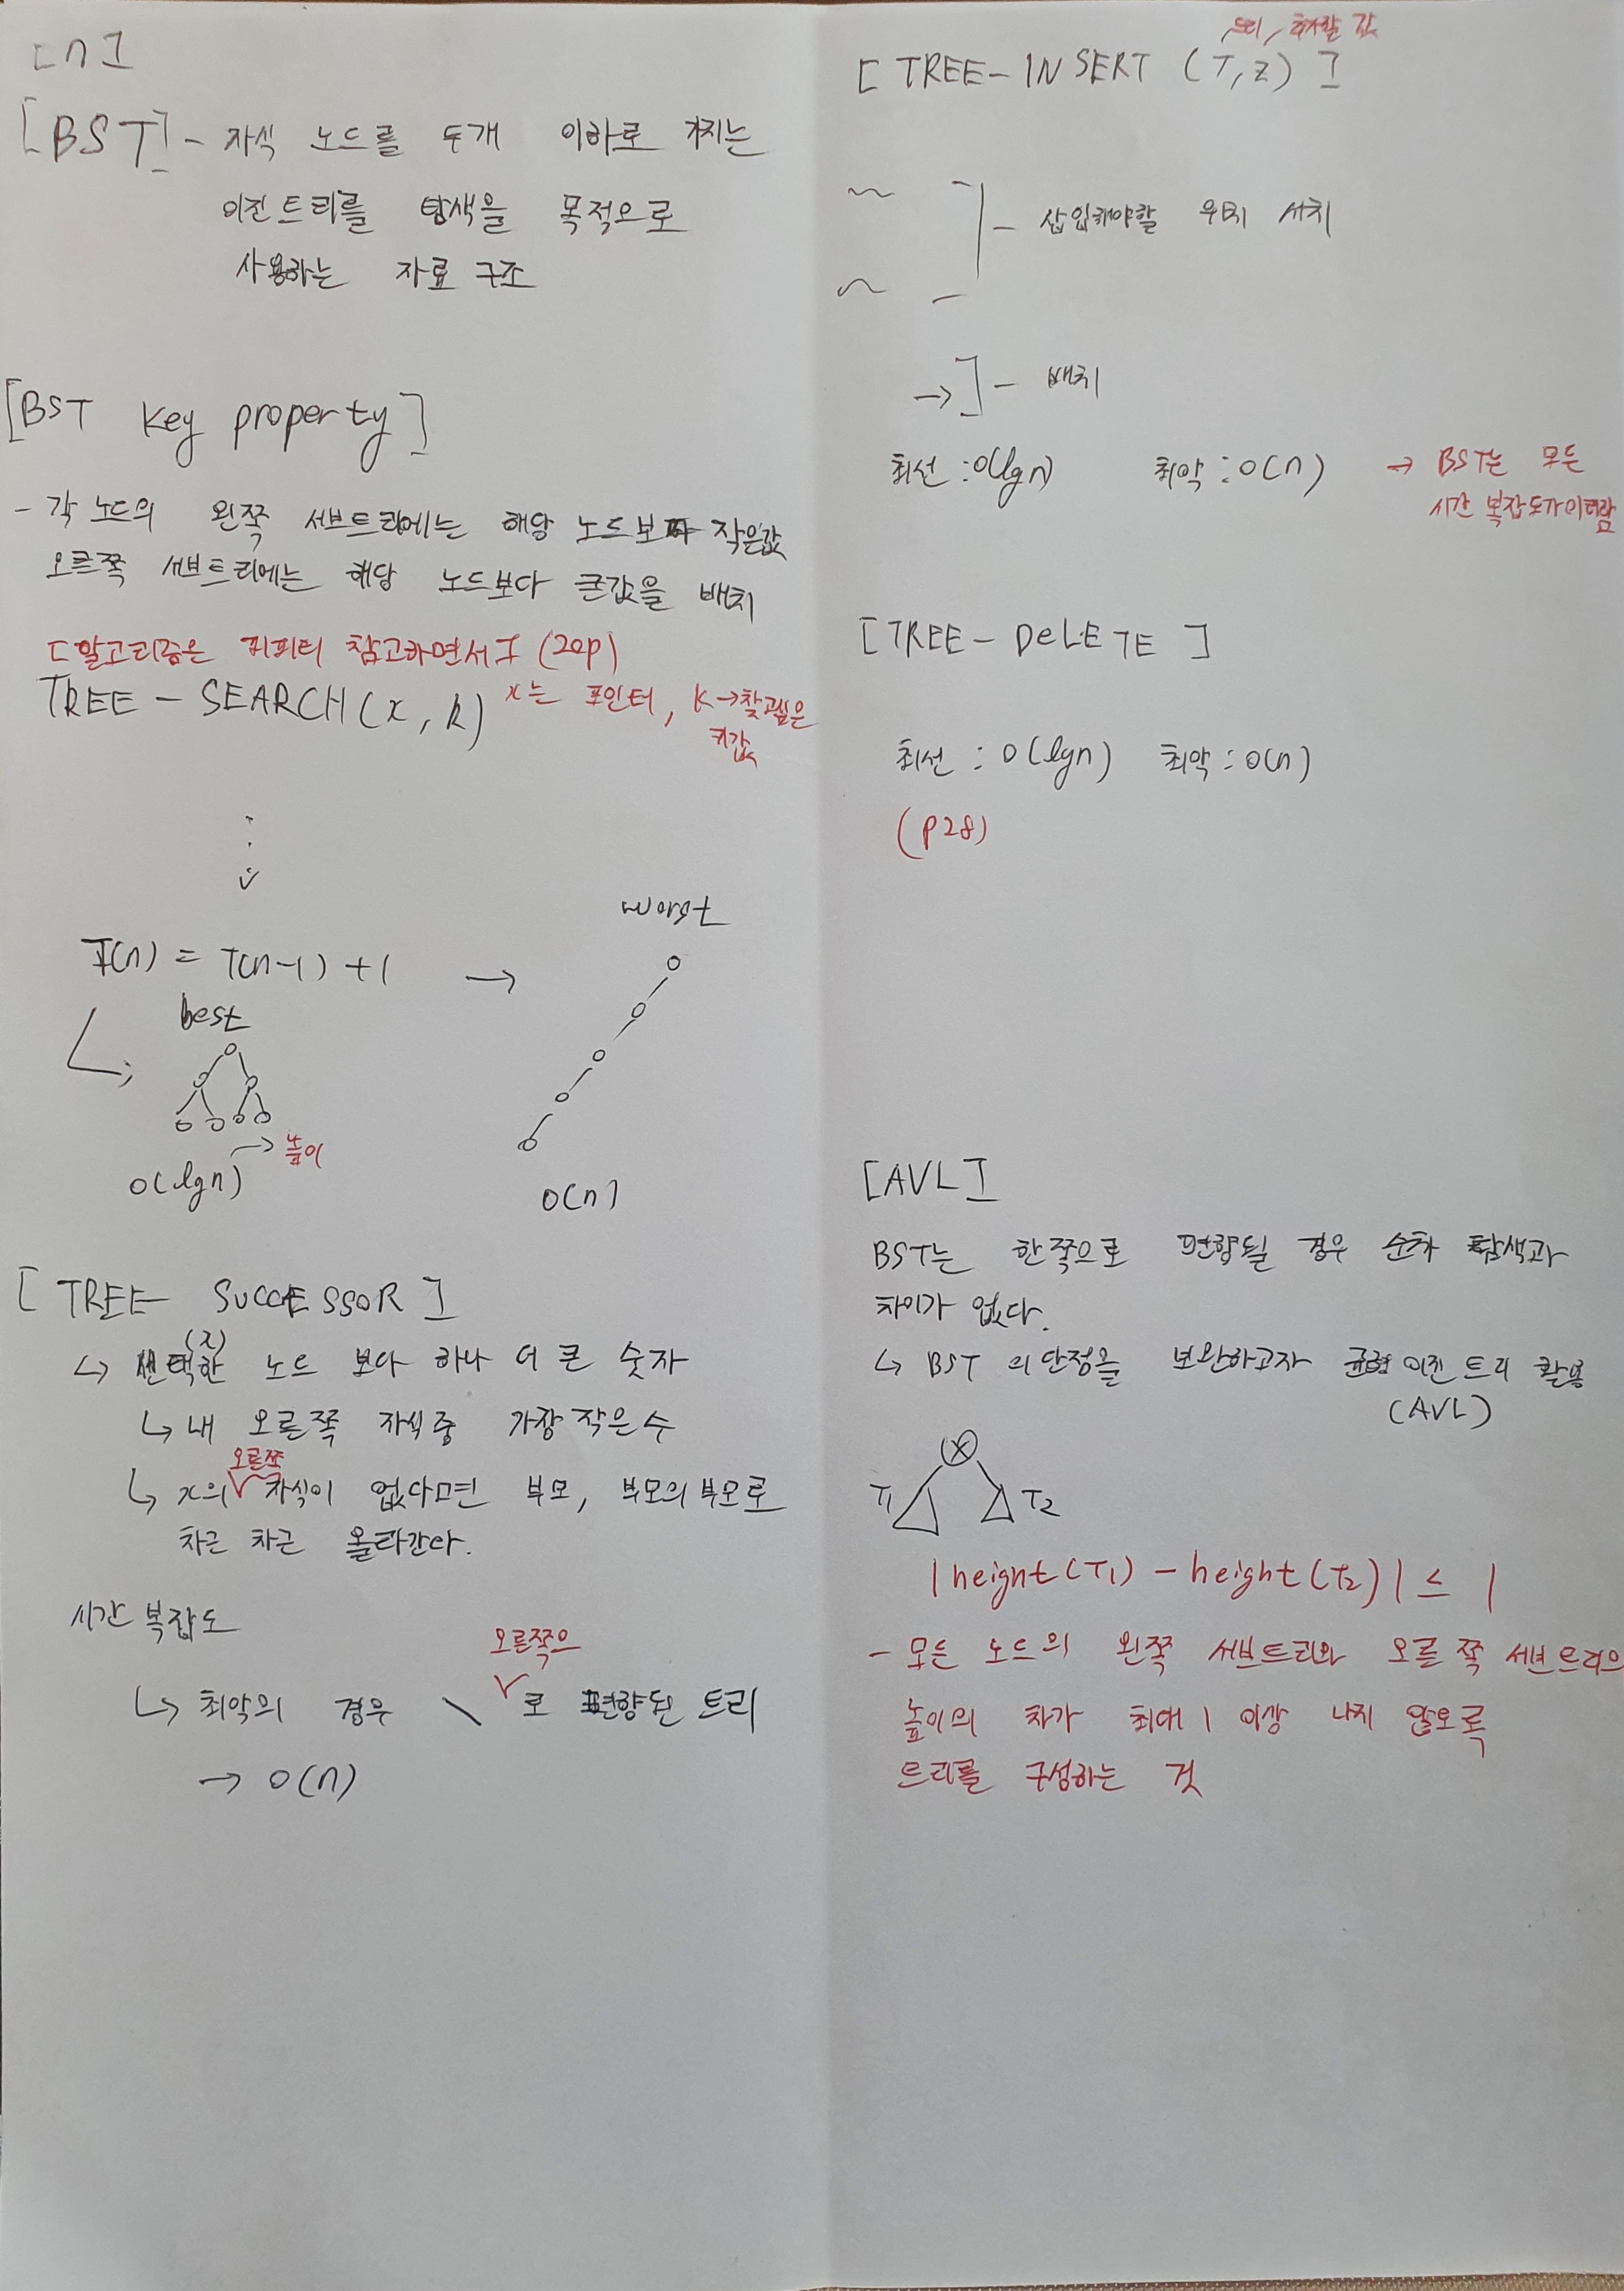 [n]
[BST] - 자식 노드를 두개 이하로 가지는
이진트리를 탐색을 목적으로
사용하는 자료구조
[BST key property]
- 각 노드의 왼쪽 서브트리에는 해당 노드보다 작은값
오른쪽 서브트리에는 해당 노드보다 큰값을 배치
[알고리즘은 피피티 참고하면서] (20p)
TREE - SEARCH(x, k) x는 포인터, k→찾고싶은
키값
T(n) = T(n-1) + 1 →
worst
best
O(lgn) → 높이
O(n)
[TREE- SUCCESSOR]
(x)
↳ 선택한 노드 보다 하나 더 큰 숫자
↳ 내 오른쪽 자식중 가장 작은수
오른쪽
↳ x의 자식이 없다면 부모, 부모의 부모로
차근 차근 올라간다.
시간 복잡도
오른쪽으
↳ 최악의 경우 \ 로 편향된 트리
→ O(n)
트리,
[TREE-INSERT (T,z)]
- 삽입해야할 위치 서치
→ ] - 배치
최선 : O(lgn) 최악 : O(n) → BST는 모든
시간 복잡도가 이러함
[TREE- DELETE]
최선 : O(lgn) 최악 : O(n)
(P28)
[AVL]
BST는 한쪽으로 편향될 경우 순차 탐색과
차이가 없다.
↳ BST의 단점을 보완하고자 균형 이진트리 활용
(AVL)
x
T1 T2
|height(T1) - height(T2)| ≤ 1
- 모든 노드의 왼쪽 서브트리와 오른쪽 서브트리의
높이의 차가 최대 1 이상 나지 않도록
트리를 구성하는 것